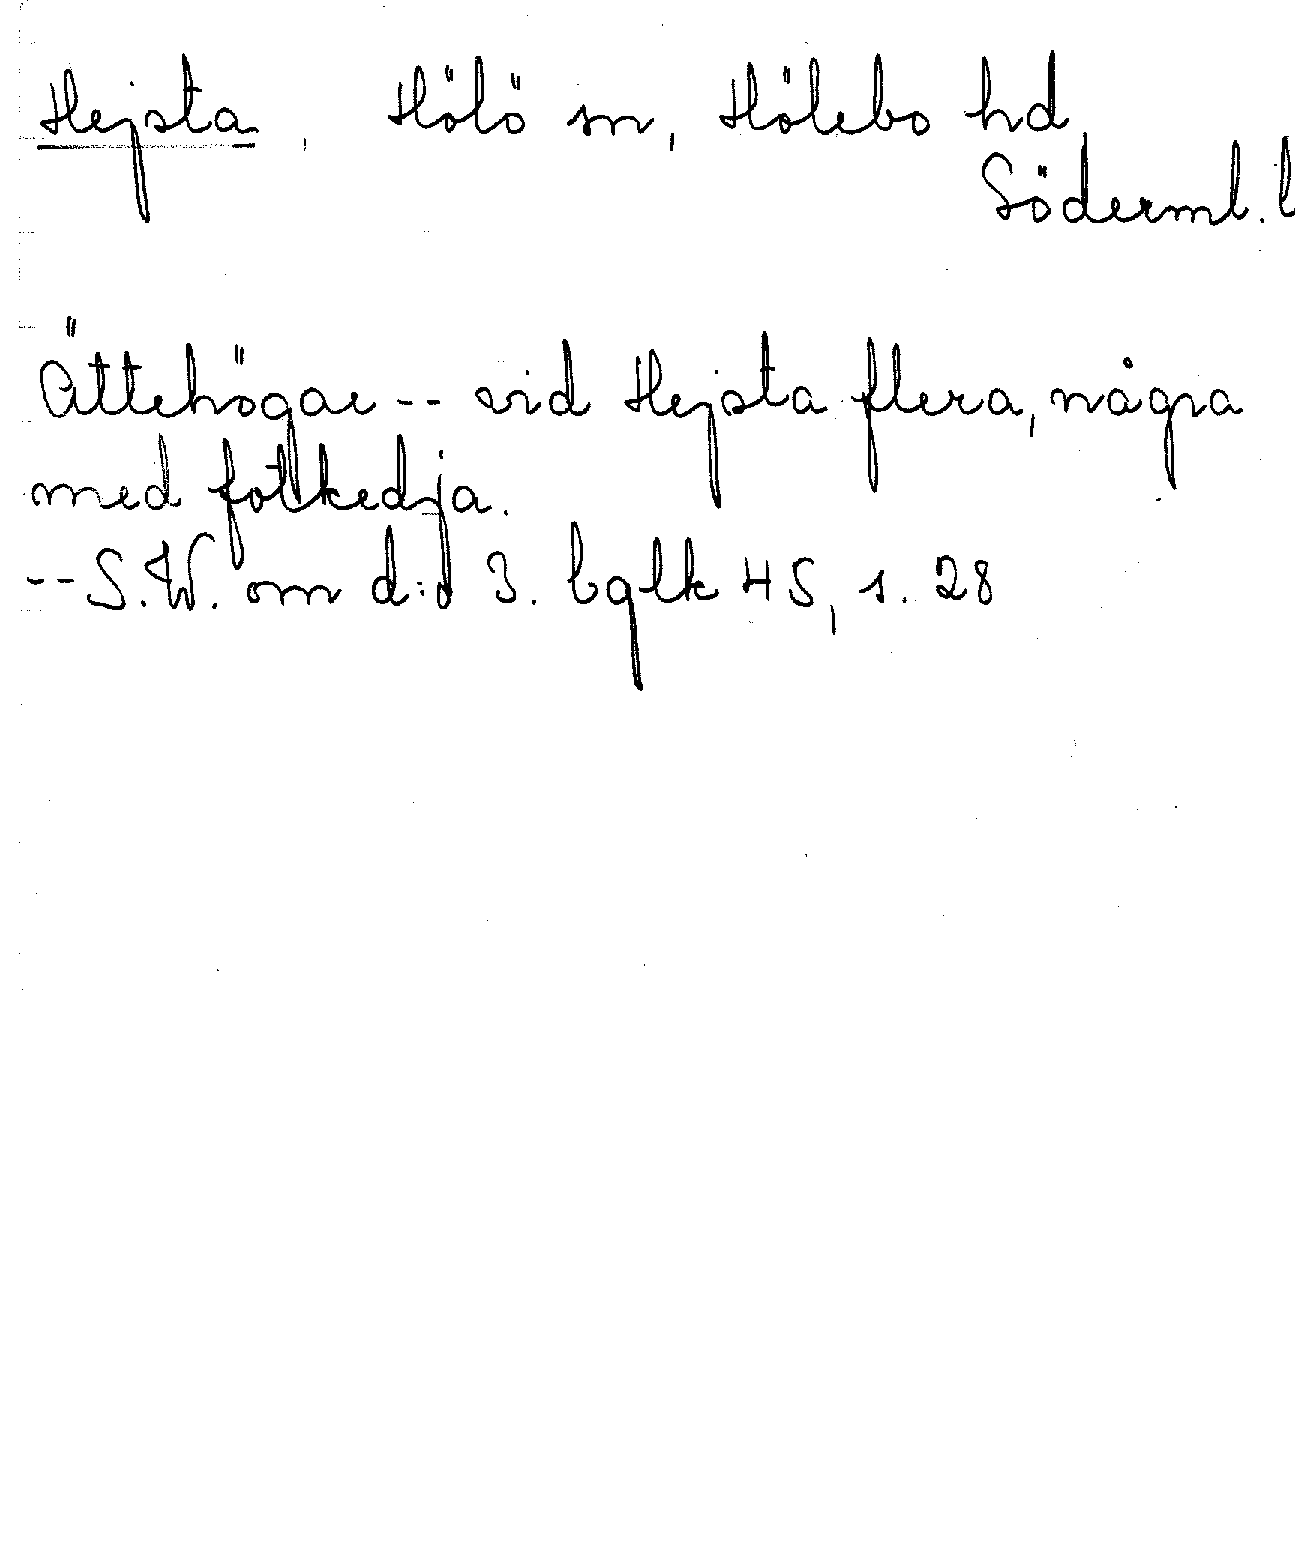 Hejsta, Hölö sn, Hölebo hd,
Söderml. l
Ättehögar -- vid Hejsta flera, några
med fotkedja.
-- S.W. om d:o 3. bglk 45, s. 28